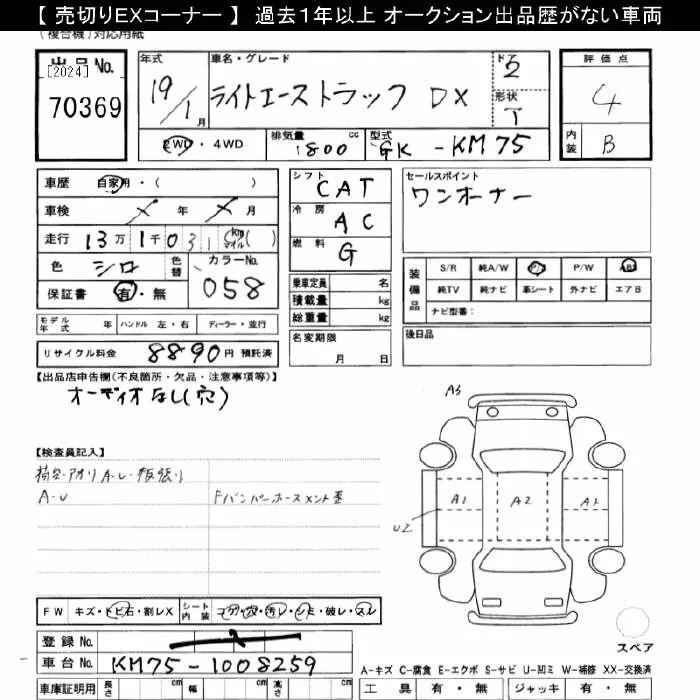 【 売切りEXコーナー 】 過去1年以上 オークション出品歴がない車両
(複合機)対応用紙
出品 No.
[2024]
70369
年式
19/1月
車名・グレード
ライトエーストラック DX
ドア
2
形状
T
評価点
4
内装
B
2WD・4WD
排気量
1800 cc
型式
GK-KM75
車歴 自家用・( )
車検 × 年 × 月
走行 13万1千031 km マイル( )
色 シロ
色替
カラーNo.
058
保証書 有・無
シフト
CAT
冷房
AC
燃料
G
セールスポイント
ワンオーナー
乗車定員 名
積載量 kg
総重量 kg
装備品
S/R 純A/W P/S P/W ABS
純TV 純ナビ 革シート 外ナビ エアB
ナビ型番:
モデル年式 年 ハンドル 左・右 ディーラー・並行
リサイクル料金 8890円 預託済
名変期限
月 日
後日品
【出品店申告欄(不良箇所・欠品・注意事項等)】
オーディオなし(穴)
【検査員記入】
荷台・アオリ A・U・板張り
A・U
Fバンパーホースメント歪
A3
A1
A2
A1
U2
FW キズ・トビ石・割レX
シート内装 コゲ・穴・汚レ・シミ・破レ・スレ
登録 No. ×
車台 No. KM75-1008259
車庫証明用 長さ cm 幅 cm 高さ cm
スペア
A-キズ C-腐食 E-エクボ S-サビ U-凹ミ W-補修 XX-交換済
工具 有・無 ジャッキ 有・無